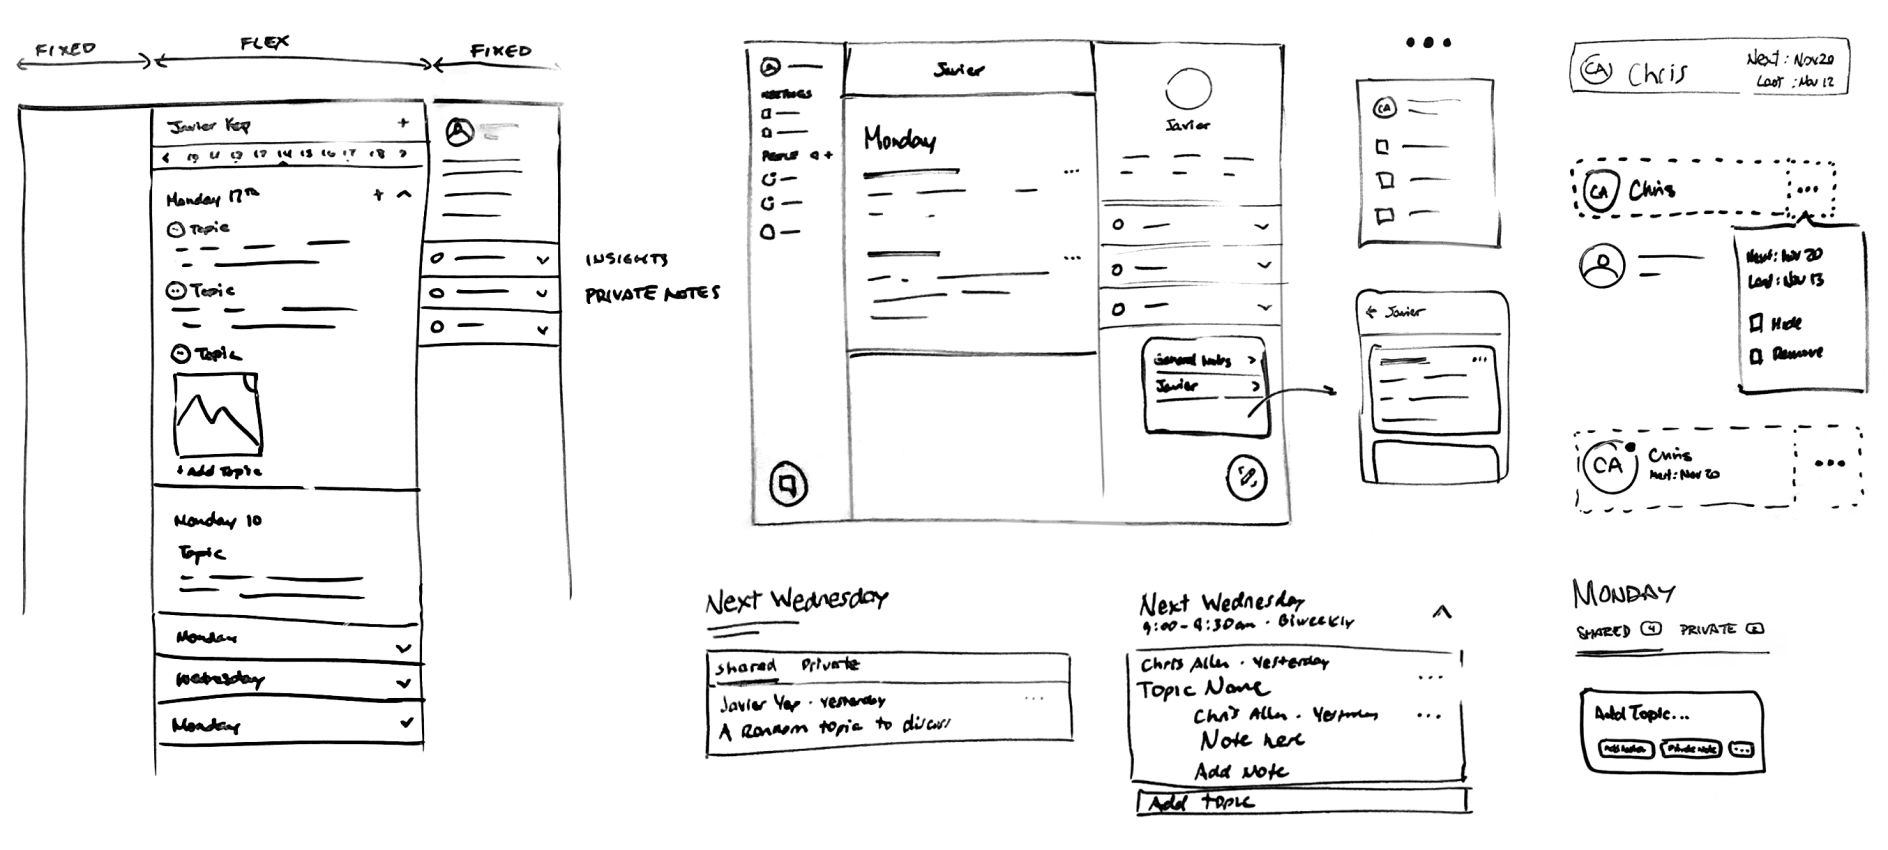 FIXED
FLEX
FIXED
Javier Yep +
Monday 17th +
Topic
Topic
Topic
+ Add Topic
Monday 10
Topic
Monday
Wednesday
Monday
INSIGHTS
PRIVATE NOTES
Javier
MEETINGS
PEOPLE
+
Monday
Javier
General Notes >
Javier >
CA
← Javier
CA Chris
Next: Nov 20
Last: Nov 12
CA Chris
Next: Nov 20
Last: Nov 13
Hide
Remove
CA
Chris
Next: Nov 20
Next Wednesday
Shared Private
Javier Yep · Yesterday
A Random topic to discuss
Next Wednesday
9:00 - 9:30am · Biweekly
Chris Allen · Yesterday
Topic Name
Chris Allen · Yesterday
Note here
Add Note
Add topic
MONDAY
SHARED 4 PRIVATE 2
Add Topic...
Private Note